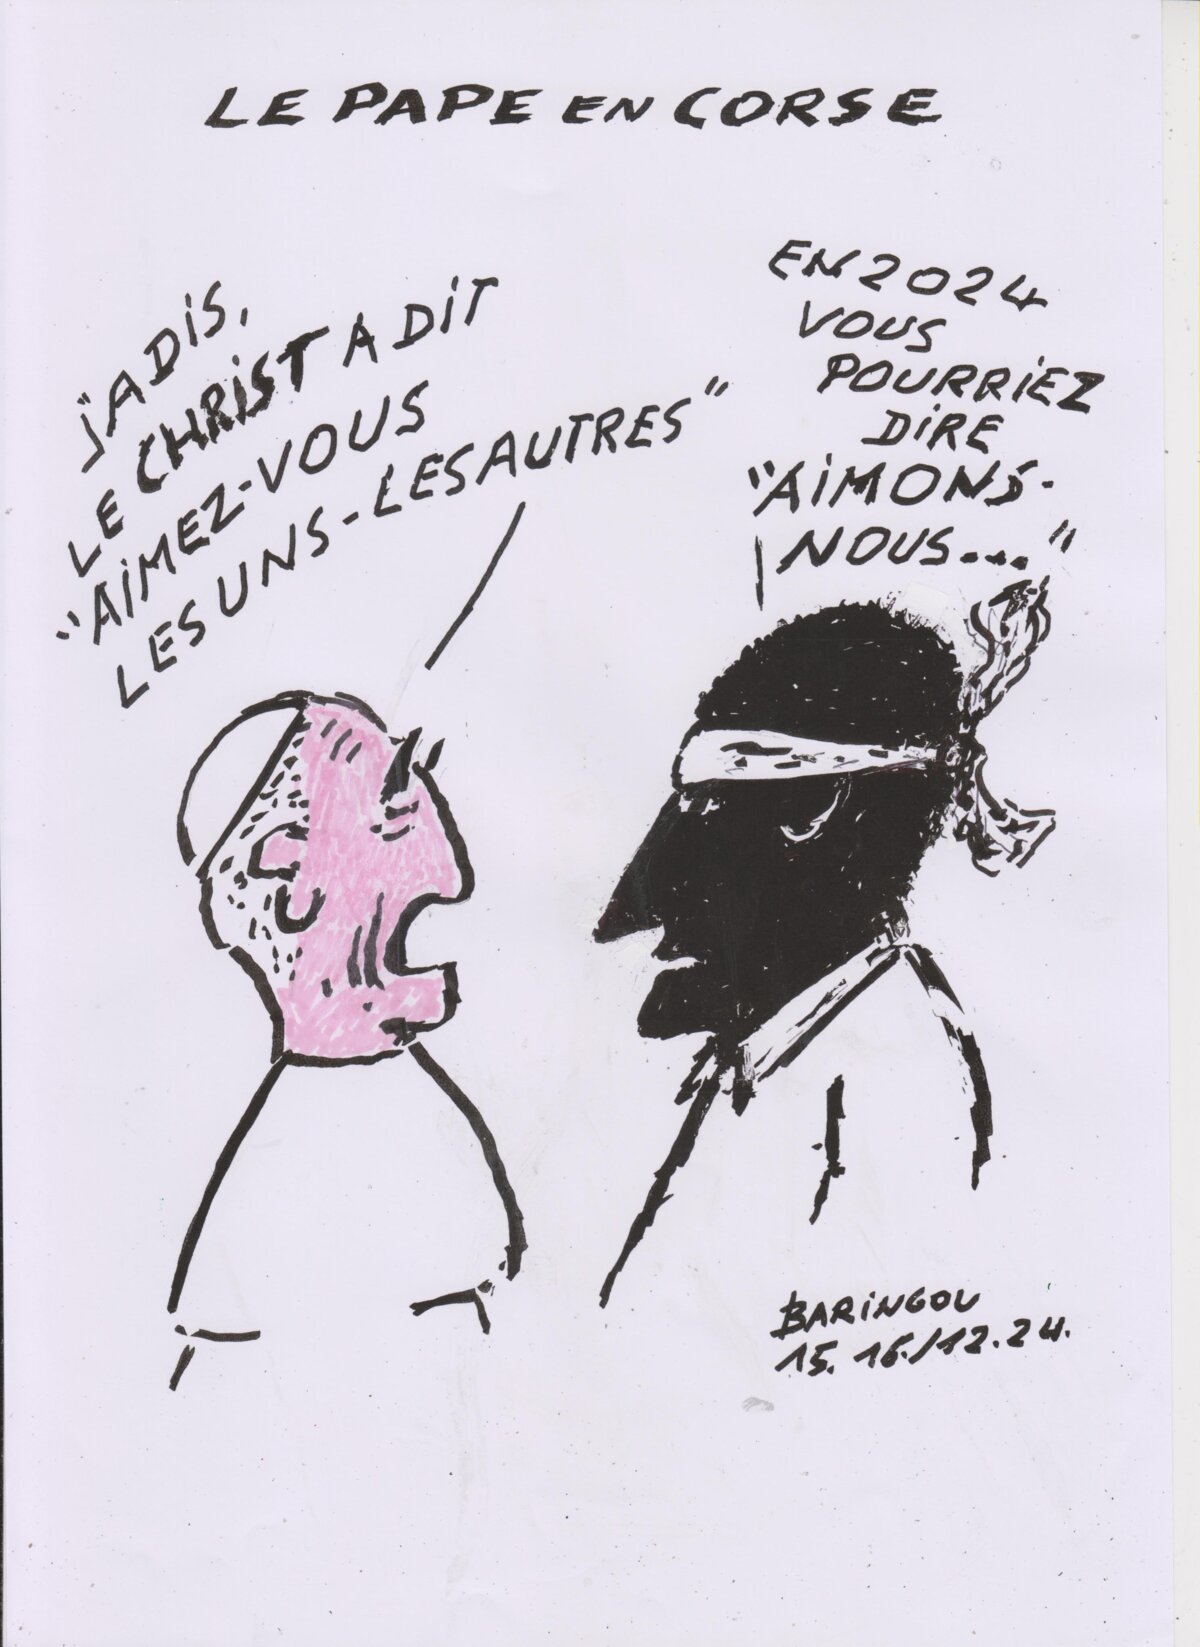 LE PAPE EN CORSE
JADIS,
LE CHRIST A DIT
"AIMEZ-VOUS
LES UNS-LES AUTRES"
EN 2024
VOUS
POURRIEZ
DIRE
"AIMONS-
NOUS..."
BARINGOU
15.16./12.24.